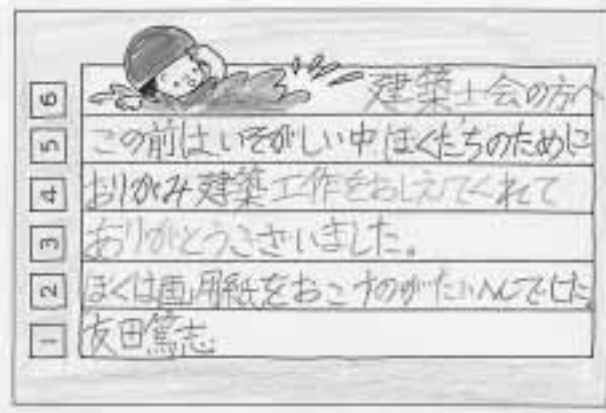 建築士会の方へ
この前は、いそがしい中ぼくたちのために
おりがみ建築工作をおしえてくれて
ありがとうございました。
ぼくは画用紙をおこすのがたいへんでした。
友田篤志
6
5
4
3
2
1